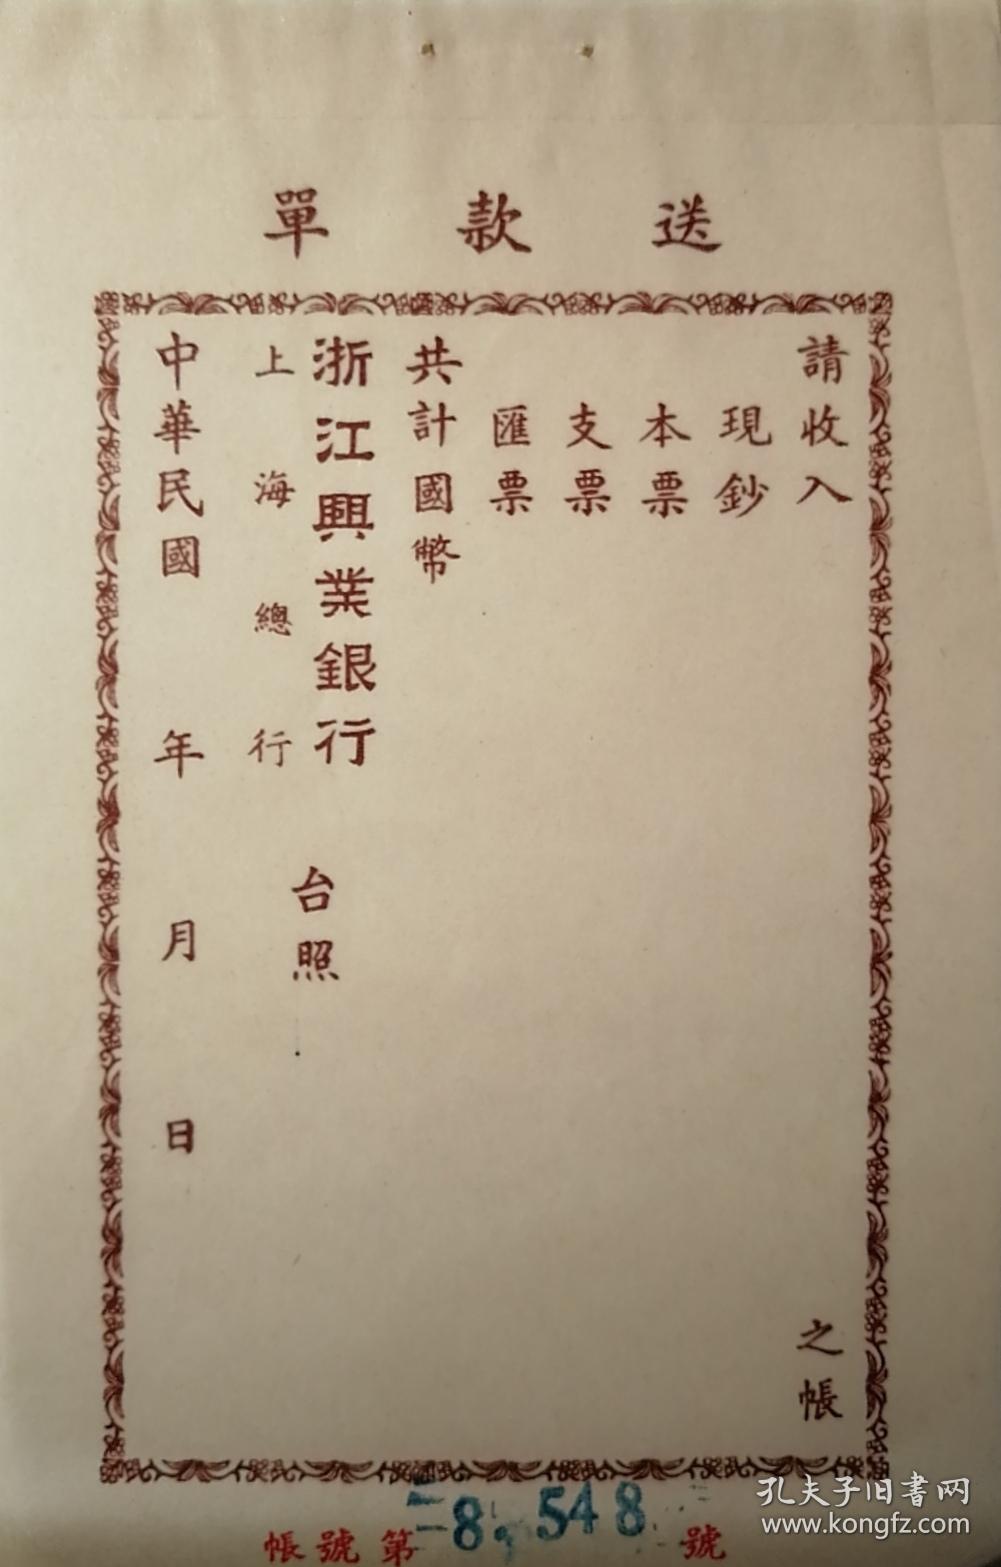 送款單
請收入 之帳
現鈔
本票
支票
匯票
共計國幣
浙江興業銀行 台照
上海總行
中華民國 年 月 日
帳號第 8,548 號
孔夫子旧書网
www.kongfz.com